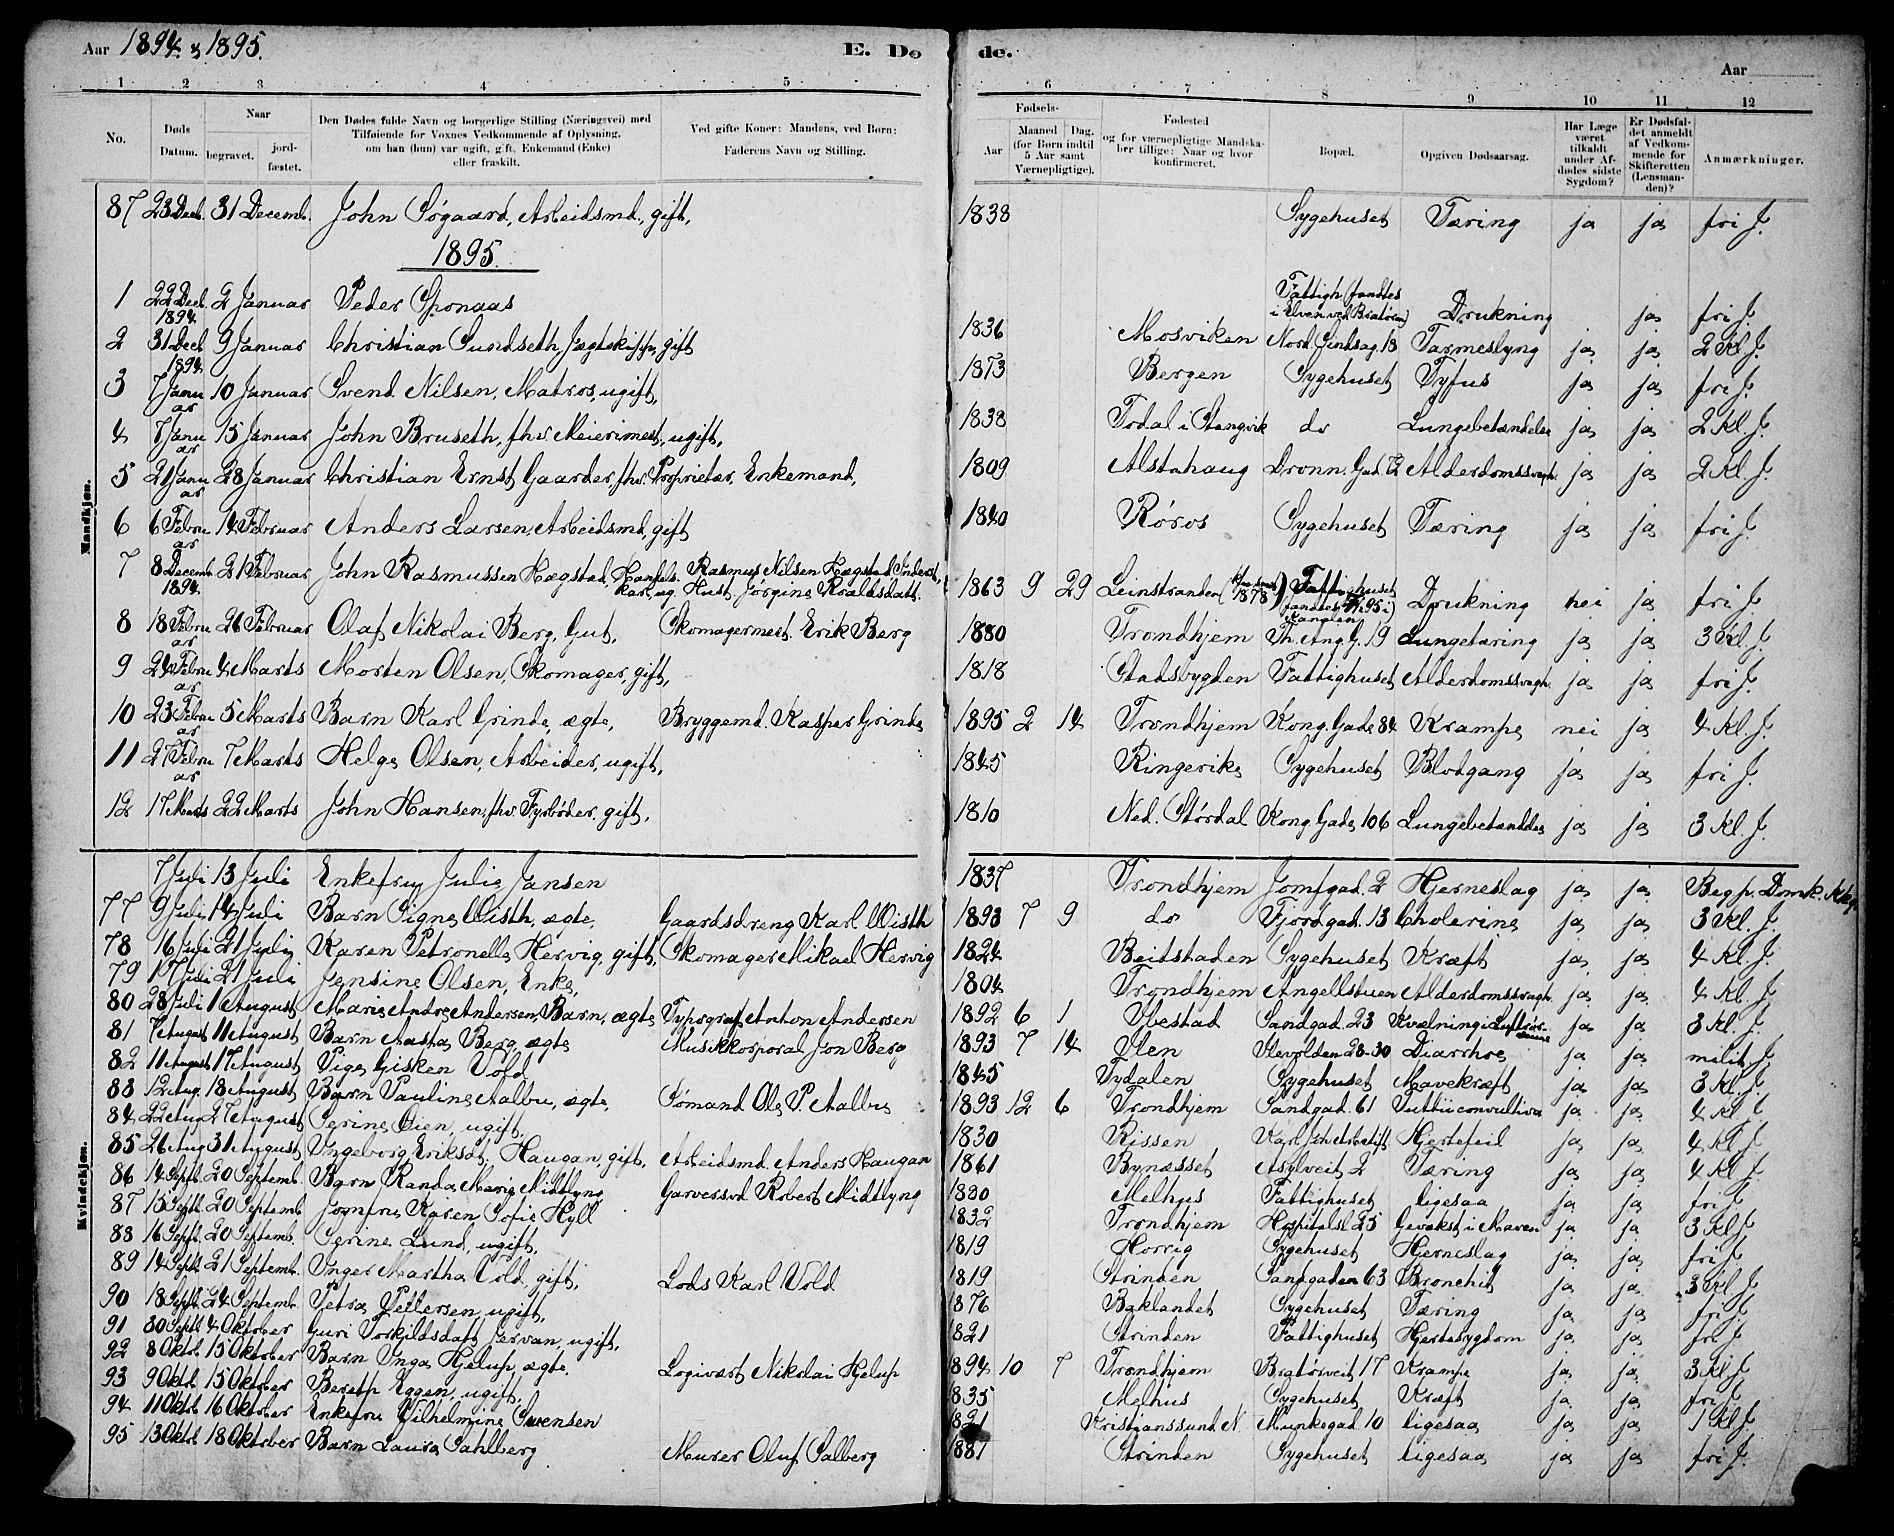 Aar 1894 & 1895. E. Dø de. Aar
1 2 3 4 5 6 7 8 9 10 11 12
No. Døds Datum. Naar begravet. jordfæstet. Den Dødes fulde Navn og borgerlige Stilling (Næringsvei) med Tilføiende for Voxnes Vedkommende af Oplysning, om han (hun) var ugift, gift, Enkemand (Enke) eller fraskilt. Ved gifte Koner: Mandens, ved Børn: Faderens Navn og Stilling. Fødsels- Aar Maaned Dag. (for Børn indtil 5 Aar samt Værnepligtige). Fødested og for værnepligtige Mandskaber tillige: Naar og hvor konfirmeret. Bopæl. Opgiven Dødsaarsag. Har Læge været tilkaldt under Afdødes sidste Sygdom? Er Dødsfaldet anmeldt af Vedkommende for Skifteretten (Lensmanden)? Anmærkninger.
Mandkjøn.
87 23 Decb. 31 Decemb. John Søgaard, Arbeidsmd., gift, 1838 Sygehuset Tæring ja ja fri J.
1895.
1 22 Decb. 1894. 2 Januar Peder Sponaas Fattigh. (fandtes i Elven ved Bratøren) Drukning ja fri J.
2 31 Decb 1894. 9 Januar Christian Sundseth, Jægteskipper, gift 1836 Mosviken Nord. Sindsag. 18 Tarmeslyng ja ja 2 Kl. J.
3 7 Januar 10 Januar Svend Nilsen, Matros, ugift, 1873 Bergen Sygehuset Tyfus ja ja fri J.
4 7 Januar 15 Januar John Bruseth, fhv. Meierimest., ugift, 1838 Todal i Stangvik do Lungebetændelse ja ja 2 Kl. J.
5 21 Januar 28 Januar Christian Ernst Gaarder, fhv. Proprietær, Enkemand, 1809 Alstahaug Dronn. Gad. 72 Alderdomssvagh. ja ja 2 Kl. J.
6 6 Februar 14 Februar Anders Larsen, Arbeidsmd., gift 1840 Røros Sygehuset Tæring ja ja fri J.
7 8 Decemb. 1894. 21 Februar John Rasmussen Hægstad, Handels. karl, ug. Rasmus Nilsen Hægstad, Inderst, Hust. Jørgine Roaldsdatt. 1863 9 29 Leinstranden (1878) Fattighuset (fandtes 95 i Kanalen) Drukning nei ja fri J.
8 18 Februar 26 Februar Olaf Nikolai Berg, Gut, Skomagermest. Erik Berg 1880 Trondhjem Th. Ang. G. 19 Lungetæring ja ja 3 Kl. J.
9 24 Februar 4 Marts Morten Olsen, Skomager, gift, 1818 Stadsbygden Fattighuset Alderdomssvagh. ja ja fri J.
10 23 Februar 5 Marts Barn Karl Grinde, ægte, Bryggemd. Kasper Grinde 1895 2 14 Trondhjem Kong. Gade 84 Krampe nei ja 4 Kl. J.
11 27 Februar 7 Marts Helge Olsen, Arbeider, ugift, 1845 Ringerike Sygehuset Blodgang ja ja fri J.
12 17 Marts 22 Marts John Hansen, fhv. Fyrbøder, gift, 1810 Ned. Størdal Kong. Gade 106 Lungebetændelse ja ja 3 Kl. J.
Kvindekjøn.
7 Juli 13 Juli Enkefru Julie Jansen 1837 Trondhjem Jomfgad. 2 Hjerneslag ja ja Beg. p. Domk.
77 9 Juli 14 Juli Barn Signe Wisth, ægte, Gaardsdreng Karl Wisth 1893 7 9 do Fjordgad. 13 Cholerine ja ja 3 Kl. J.
78 16 Juli 21 Juli Karen Petronelle Hervig, gift, Skomager Mikael Hervig 1824 Beitstaden Sygehuset Kræft ja ja 4 Kl. J.
79 17 Juli 21 Juli Jensine Olsen, Enke, 1804 Trondhjem Angellstuen Alderdomssvagh. ja ja 4 Kl. J.
80 28 Juli 1 August Marie Andre Andersen, Barn, ægte, Typograf Anton Andersen 1892 6 1 Ibestad Sandgad. 23 Kvælning i Luftrør ja ja 3 Kl. J.
81 7 August 11 August Barn Aasta Berg, ægte Musikkorporal Jon Berg 1893 7 14 Ilen Ilevolden 28-30 Diarrhoe ja ja milit. J.
82 11 August 17 August Pige Gisken Vold 1845 Tydalen Sygehuset Mavekræft ja ja 3 Kl. J.
83 12 Aug. 18 August Barn Pauline Aalbu, ægte, Sømand Ole P. Aalbu 1893 12 6 Trondhjem Sandgad. 61 Tuttii convultiva ja ja 4 Kl. J.
84 22 Aug 27 August Serine Øien, ugift, 1830 Rissen Hjertefeil ja ja 4 Kl. J.
85 26 Aug 31 August Ingeborg Eriksdt. Haugan, gift, Arbeidsmd. Anders Haugan 1861 Bynæsset Asylveit 2 Tæring ja ja 4 Kl. J.
86 14 Septb. 20 Septemb. Barn Randa Marie Midtlyng Garversvd. Robert Midtlyng 1880 Melhus Fattighuset ligesaa ja ja fri J.
87 15 Septb. 20 Septemb Jomfru Karen Sofie Hyll 1832 Trondhjem Hospitalsl. 25 Gevækst i Maven ja ja 3 Kl. J.
88 16 Septb. 20 Septemb. Serine Lund, ugift, 1819 Horrig Sygehuset Hjerneslag ja ja fri J.
89 14 Septb. 21 Septemb. Inger Martha Vold, gift, Lods Karl Vold 1819 Strinden Sandgaden 63 Bronchit ja ja 3 Kl. J.
90 18 Septb. 24 Septemb. Petra Pettersen, ugift, 1876 Baklandet Sygehuset Tæring ja ja fri J.
91 30 Septb 4 Oktober Guri Torkildsdatt. Servan, ugift, 1821 Strinden Fattighuset Hjertesygdom ja ja fri J.
92 8 Oktb. 15 Oktober Barn Inga Hjelup, ægte. Logivært Nikolai Hjelup 1894 10 7 Trondhjem Bratørveit 17 Krampe ja ja 3 Kl. J.
93 9 Oktb. 15 Oktober Bereth Eggen, ugift, 1835 Melhus Sygehuset Kræft ja ja fri J.
94 11 Oktb 16 Oktober Enkefru Vilhelmine Svensen 1821 Kristianssund N. Munkegad 10 ligesaa ja ja 1 Kl. J.
95 13 Oktb. 18 Oktober Barn Laura Sahlberg Murer Oluf Salberg 1881 Strinden Sygehuset ligesaa ja ja fri J.